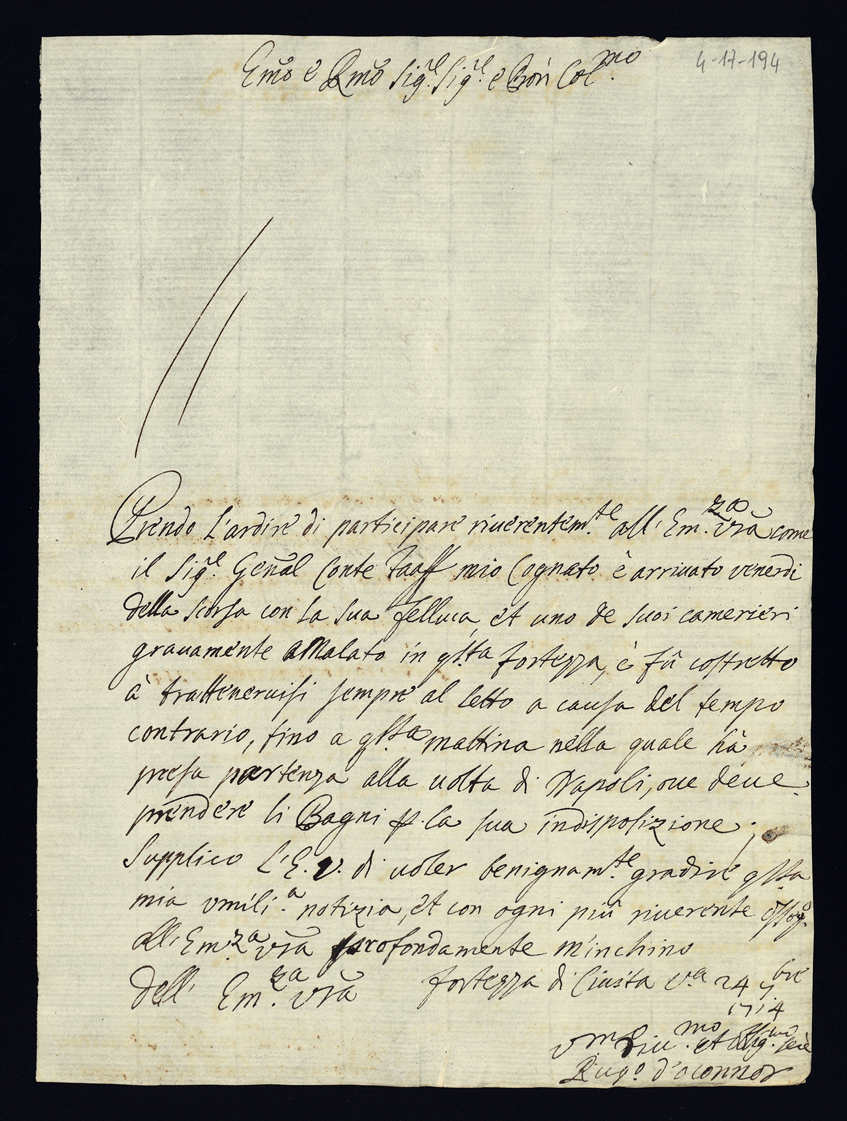 Emo è Rmo Sig.re Sig.re e Pron Col.mo
4-17-194
Prendo L'ardire di participare riuerentem.te all'Em.za vrã come
il Sig.re Genãl Conte Taaff mio Cognato è arriuato venerdi
della scorsa con la sua felluca, et uno de suoi camerieri
grauamente amalato in qsta fortezza, è fù costretto
à tratteneruisi sempre al letto a causa del tempo
contrario, fino a qsta mattina nella quale hà
presa partenza alla uolta di Napoli, oue deue
prendere li Bagni p. la sua indisposizione;
Supplico L'E. V. di uoler benignam.te gradire qsta
mia vmili.a notizia, et con ogni più riuerente
all'Em.za vrã profondamente m'inchino
Dell' Em.za vrã fortezza di Ciuita V.a 24 7bre
1714
Vm.o Diu.mo et Obblig.mo Ser.e
d'oconnor